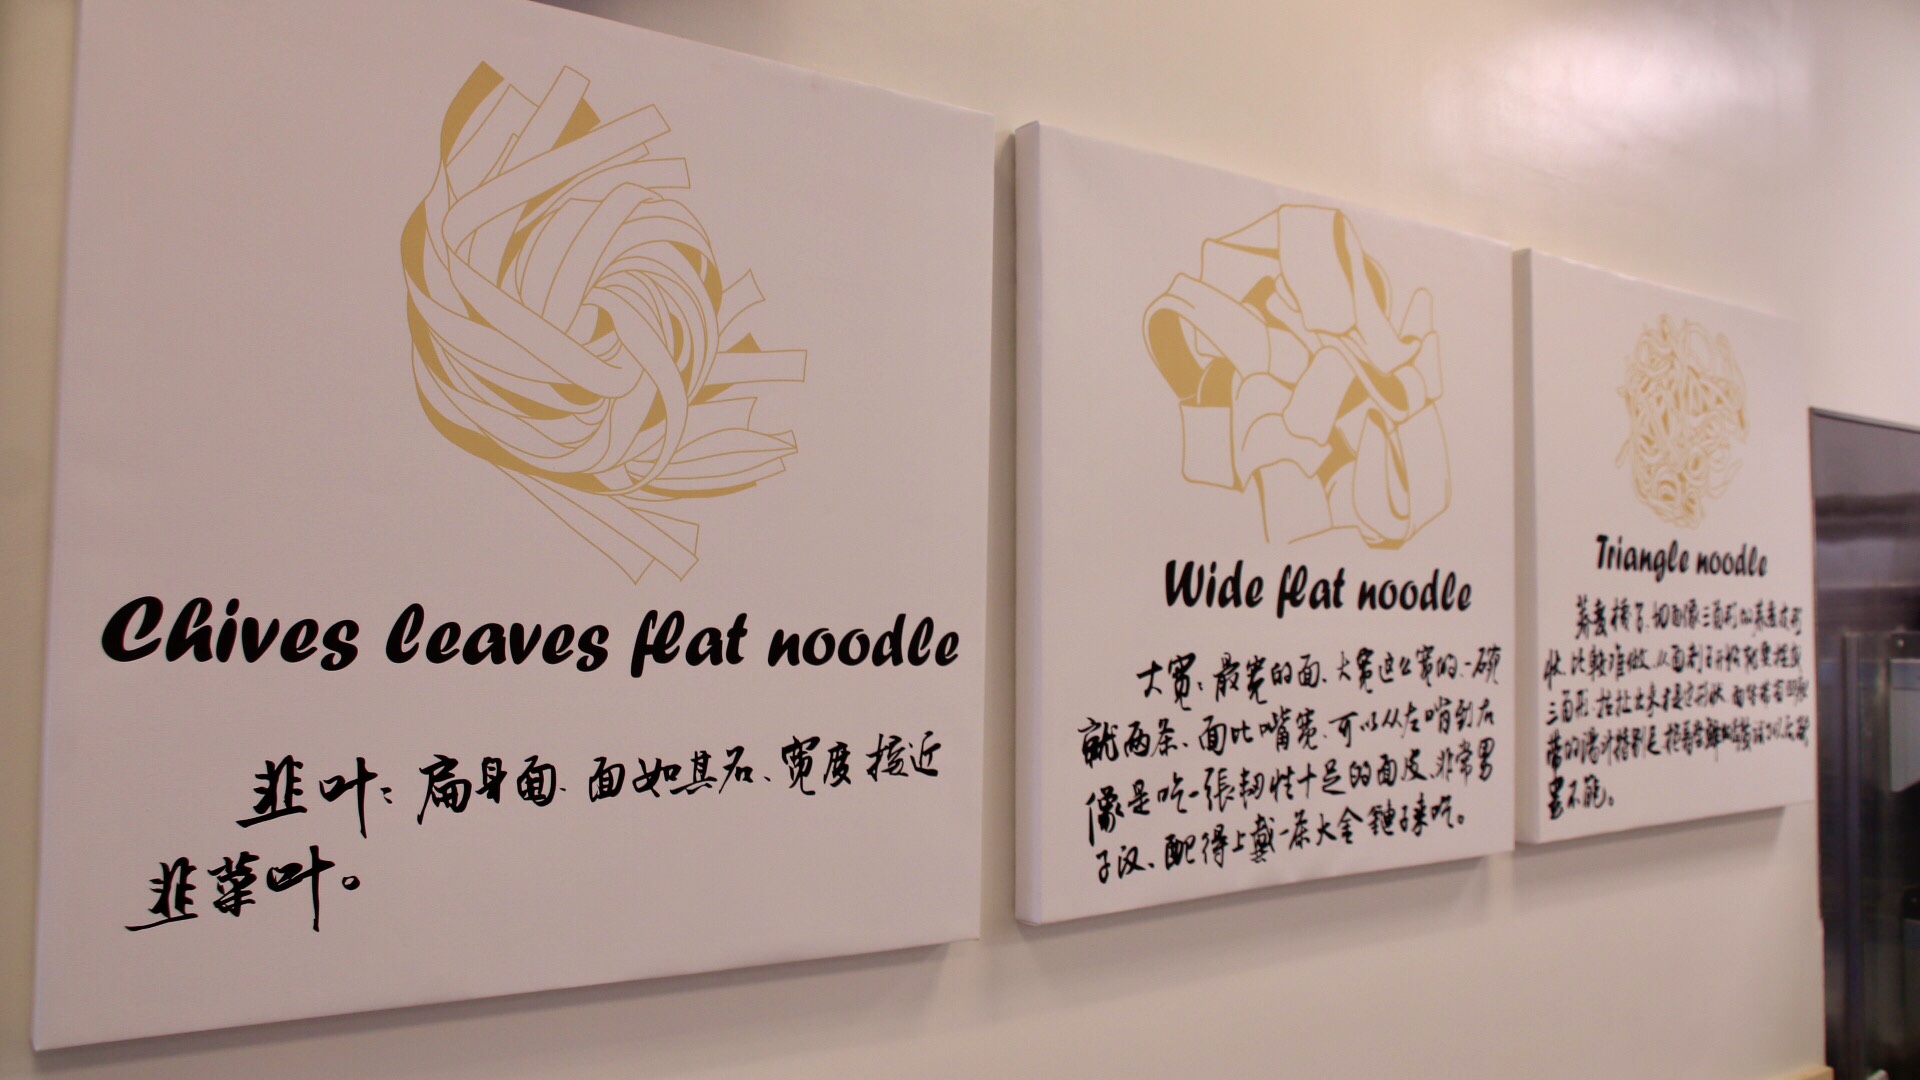 Chives leaves flat noodle
韭叶：扁身面、面如其名、宽度接近
韭菜叶。
Wide flat noodle
大宽：最宽的面、大宽这么宽的、一碗
就两条、面比嘴宽、可以从左啃到右
像是吃一張韧性十足的面皮、非常男
子汉、配得上戴一条大金鏈子来吃。
Triangle noodle
荞麦棱子、切面像三角形的荞麦
状、比较难做、从面剂子开始就要捏成
三角形、拉扯出来才是这形状